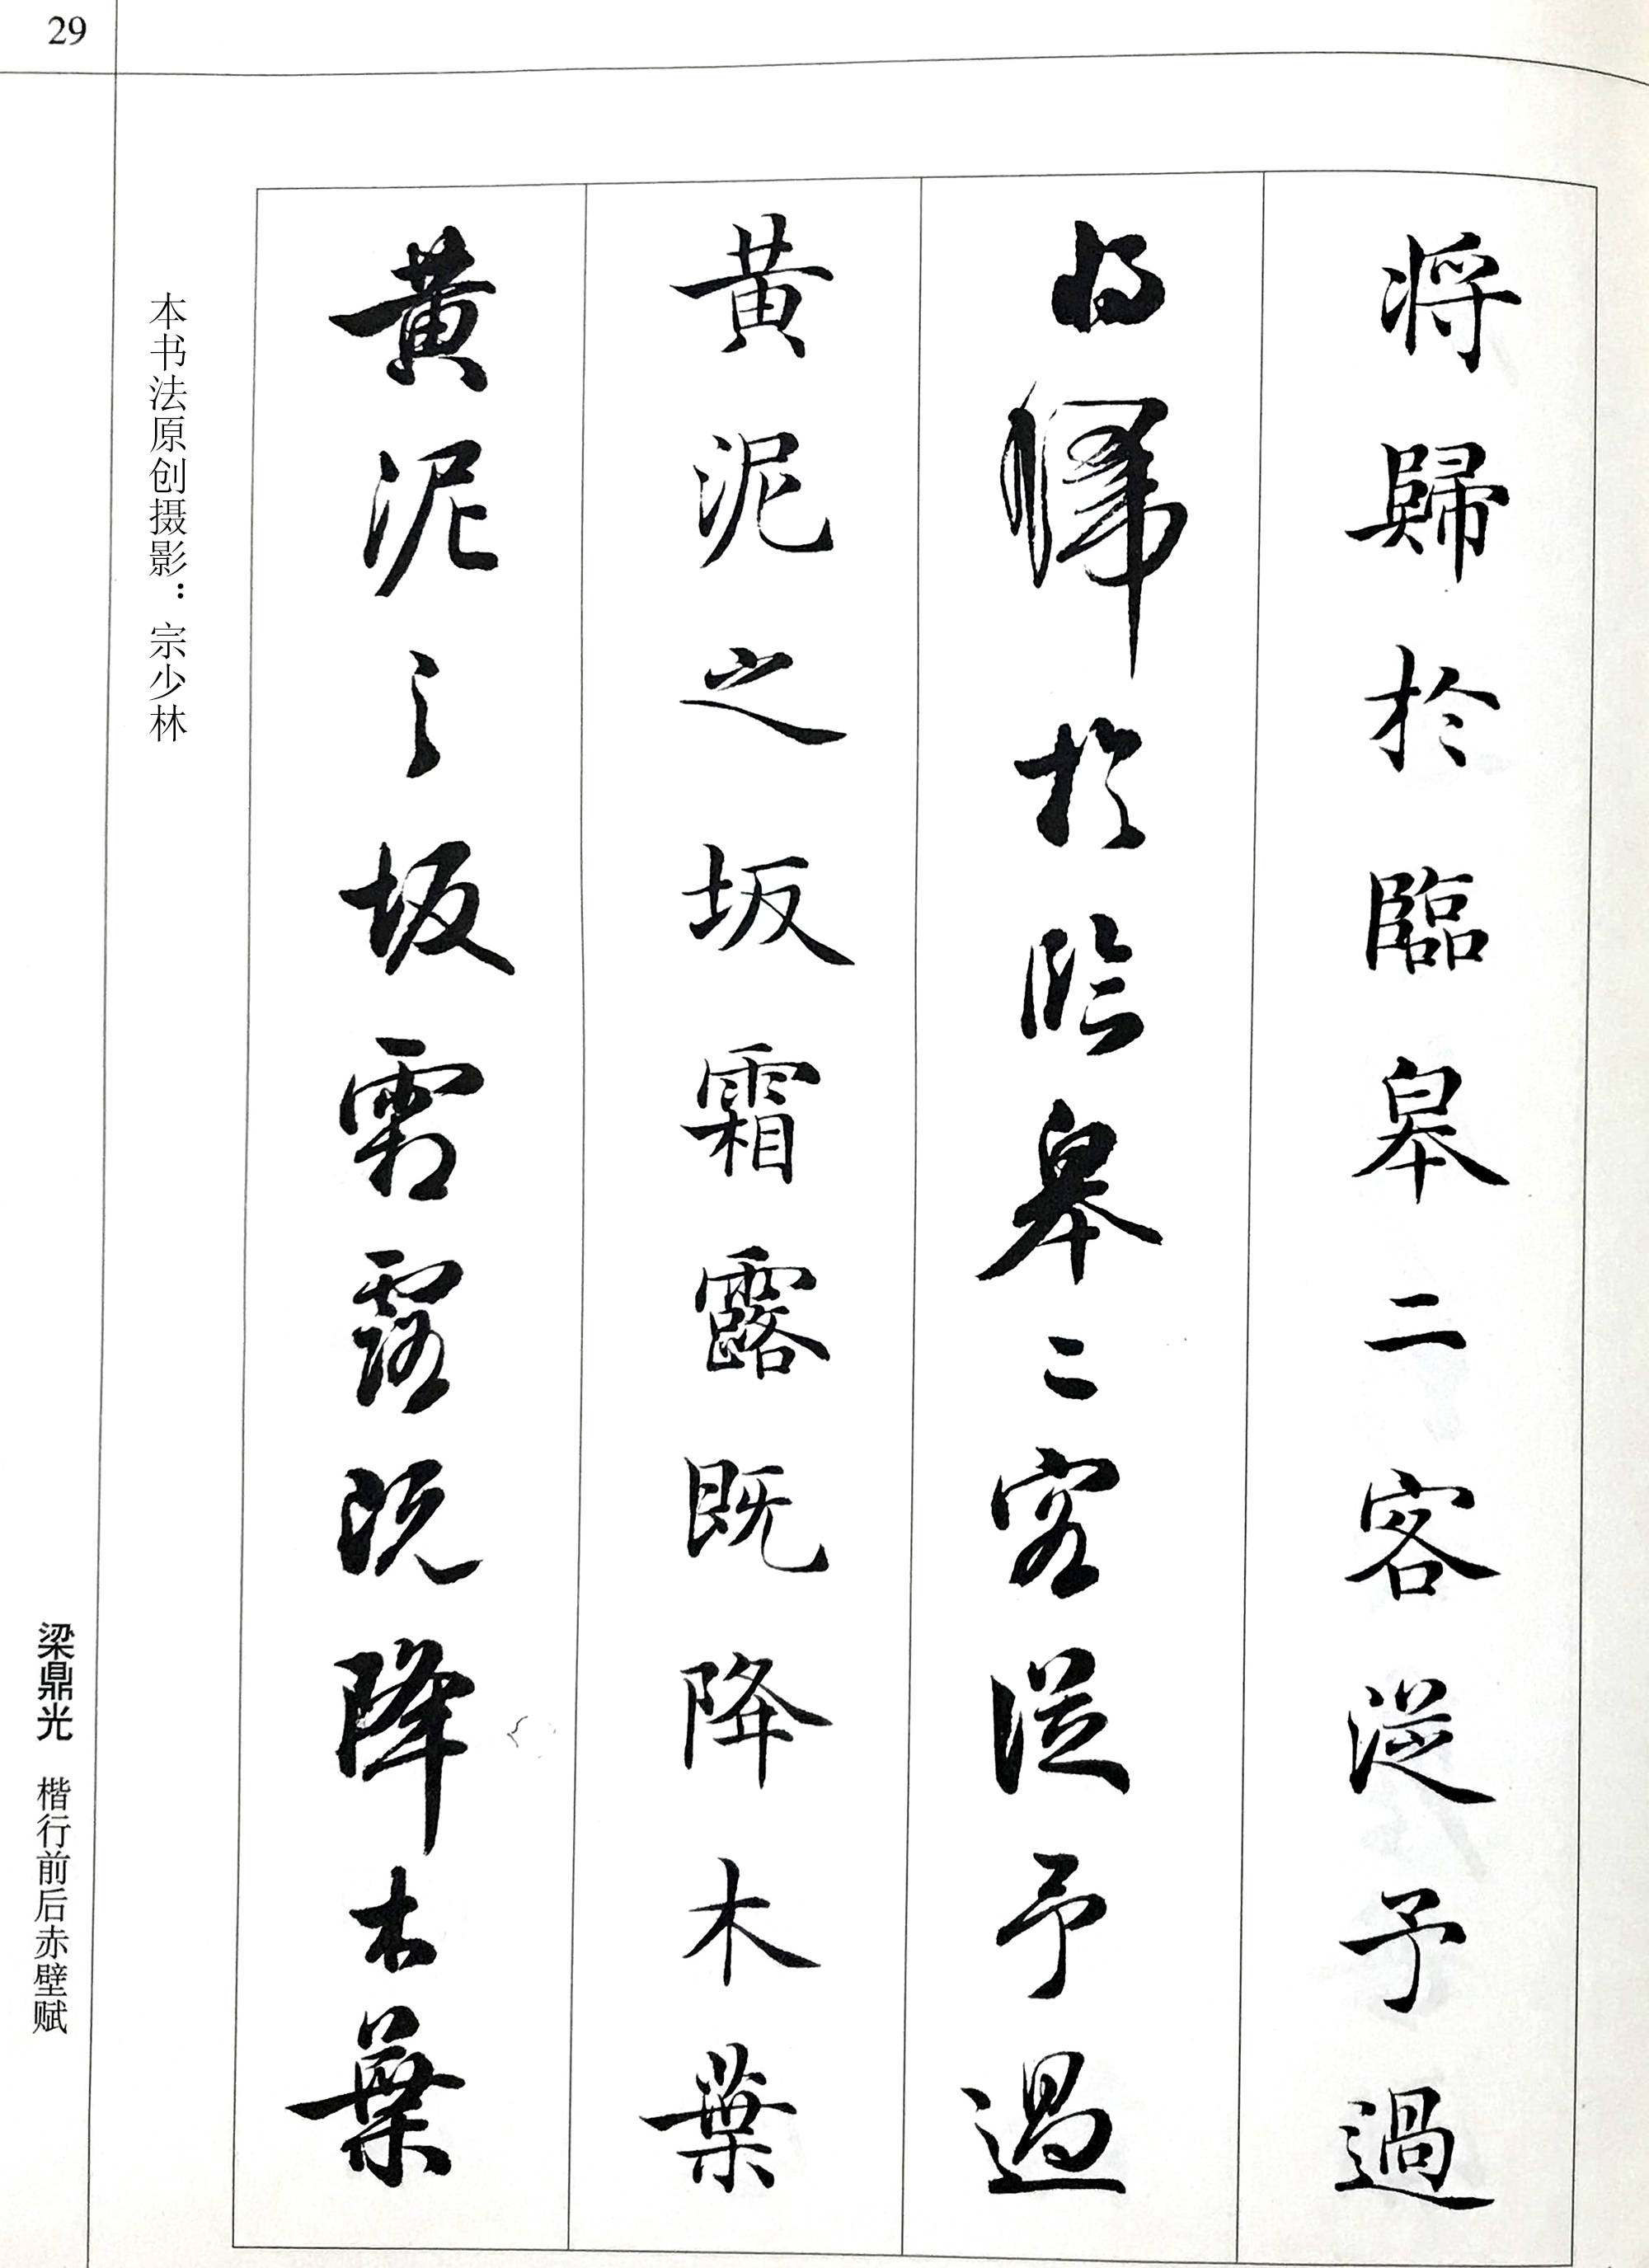 29
将歸於臨皋二客從予過
将歸於臨皋二客從予過
黄泥之坂霜露既降木葉
黄泥之坂霜露既降木葉
本书法原创摄影：宗少林
梁鼎光 楷行前后赤壁赋